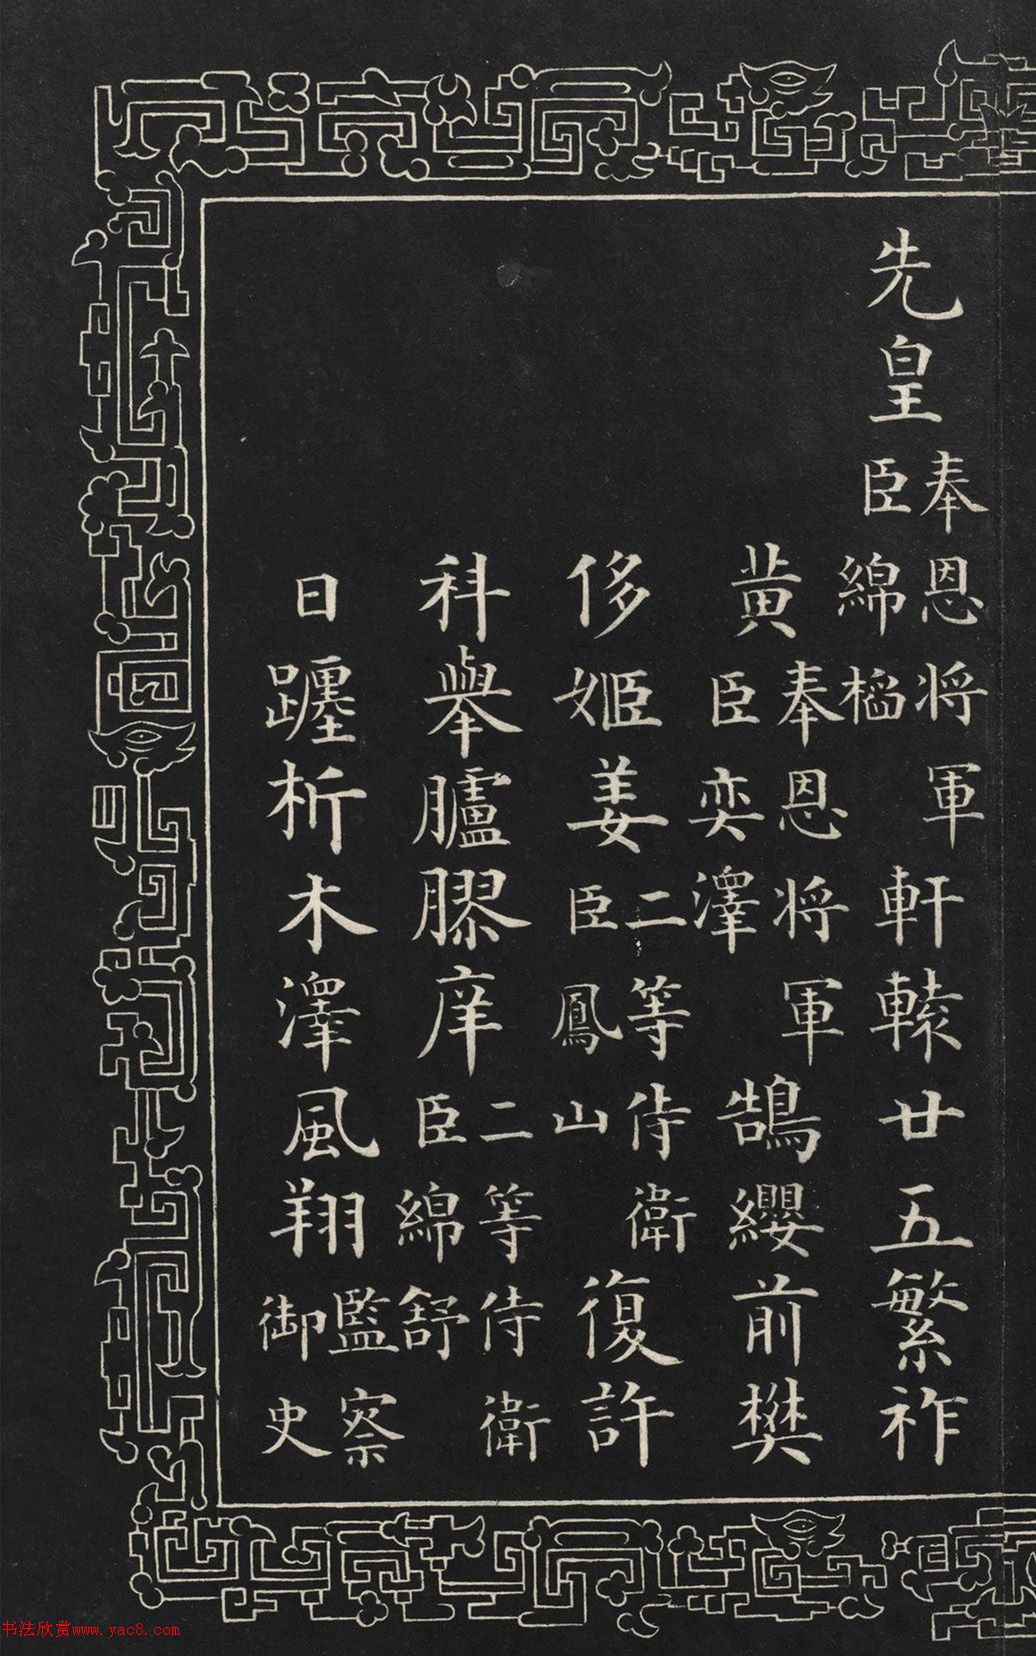 先皇奉恩将軍臣綿軒轅廿五繁祚
黄奉恩将軍臣奕澤鵠纓前樊
侈姬姜二等侍衛臣鳳山復許
科舉臚膠庠二等侍衛臣綿舒
日躔析木澤風翔監察御史
书法欣赏www.yac8.com